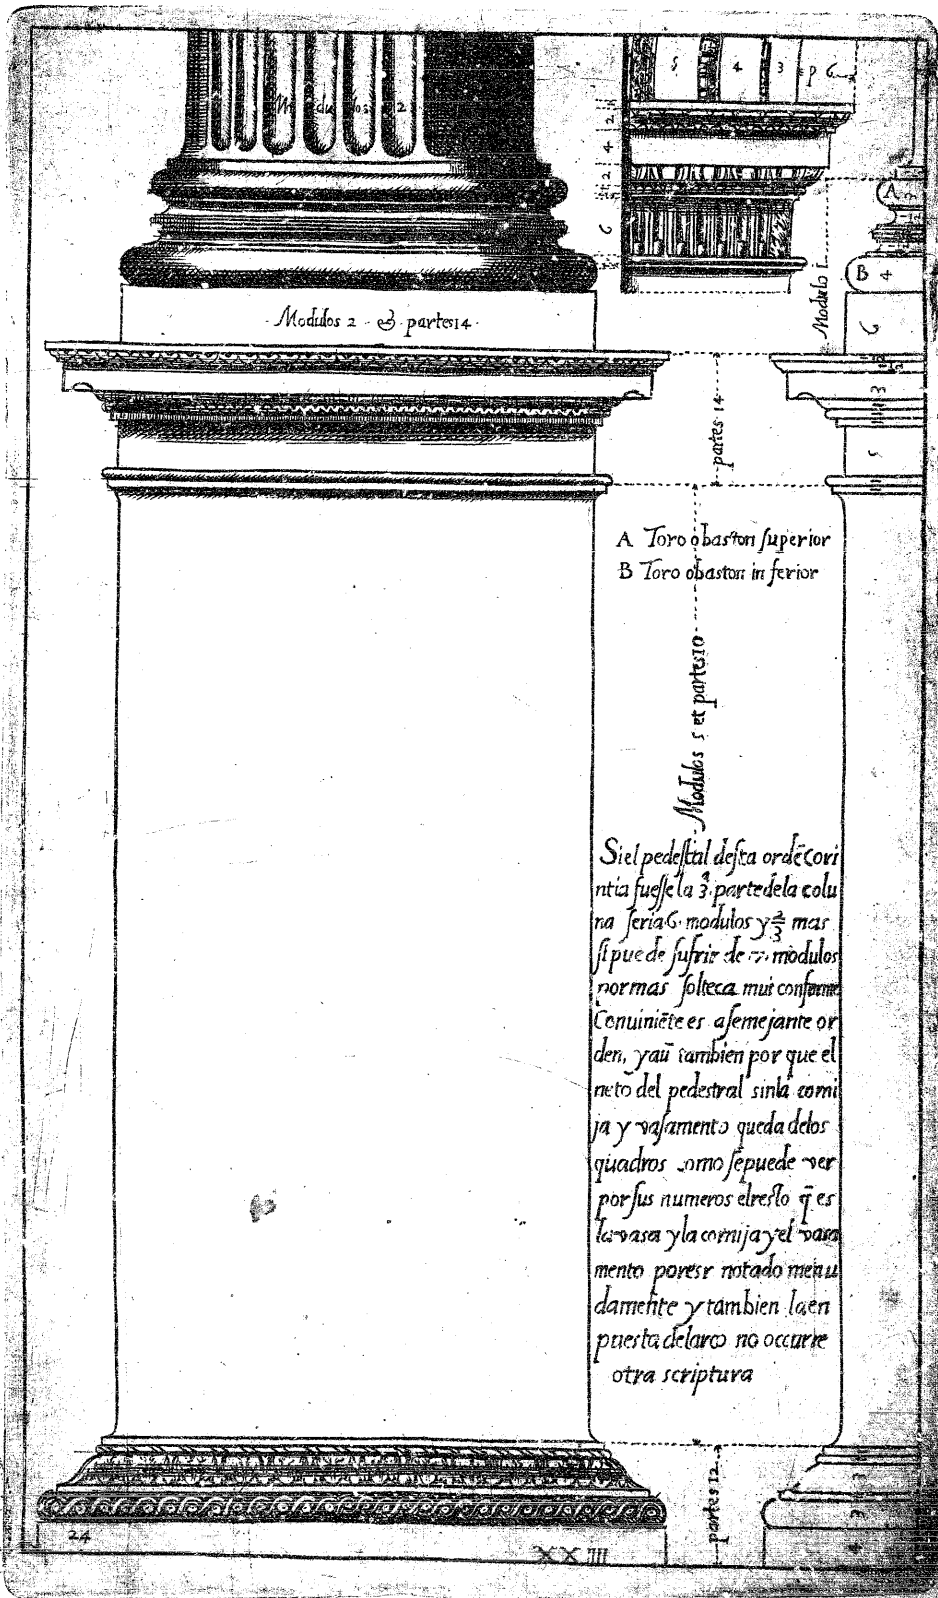 Modulos 2
5 4 3 p 6
2
4
2
6
A 3
B 4
6
Modulo 1
Modulos 2 · & · partes 14 ·
3
5
partes 14
A Toro obaston ſuperior
B Toro obaston in ferior
Modulos 5 et partes 10
Siel pedeſtal deſta ordē cori
ntia fueſſe la 3ª parte dela colu
na ſeria 6 modulos y 2/3 mas
ſi puede ſufrir de 7 modulos
por mas ſolteca mui conforme
Conuiniēte es a ſemejante or
den, y aū tambien por que el
neto del pedestral sin la corni
ja y vaſamento queda delos
quadros como ſe puede ver
por ſus numeros el reſto q̄ es
la vasa y la cornija y el vasa
mento por esr notado menu
damente y tambien la en
puesta del arco no occurre
otra scriptura
partes 12
3
3
4
24
XXIIII